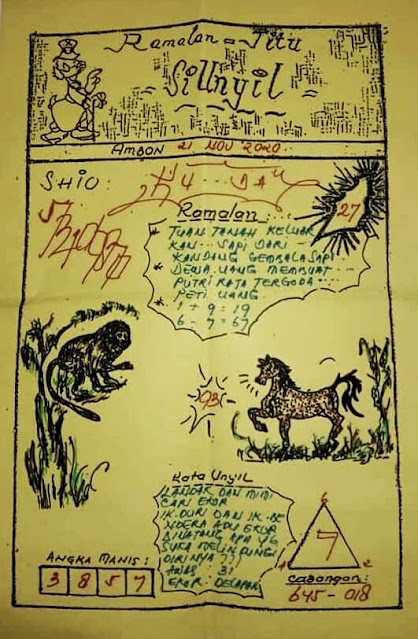 Ramalan = Jitu
= Si Unyil =
AMBON 21 NOV 2020
SHIO:
27
Ramalan:
* TUAN TANAH KELUAR
KAN .. SAPI DARI -
KANDANG GEMBALA SAPI
* DEWA UANG MEMBUAT ...
PUTRI RATA TERGODA
PETI UANG
1 + 9 = 19
6 - 7 = 67
Kata Unyil
LANDAK DAN MIMI
CARI EKOR
IK-DURI DAN IK-BE
NDERA ADU EKOR
BINATANG APA YG
SUKA MELINDUNGI
DIRINYA ??
AWAS: 31
EKOR: DELAPAN
6
7
2
ANGKA MANIS:
3 8 5 7
CABANGAN:
645 - 018